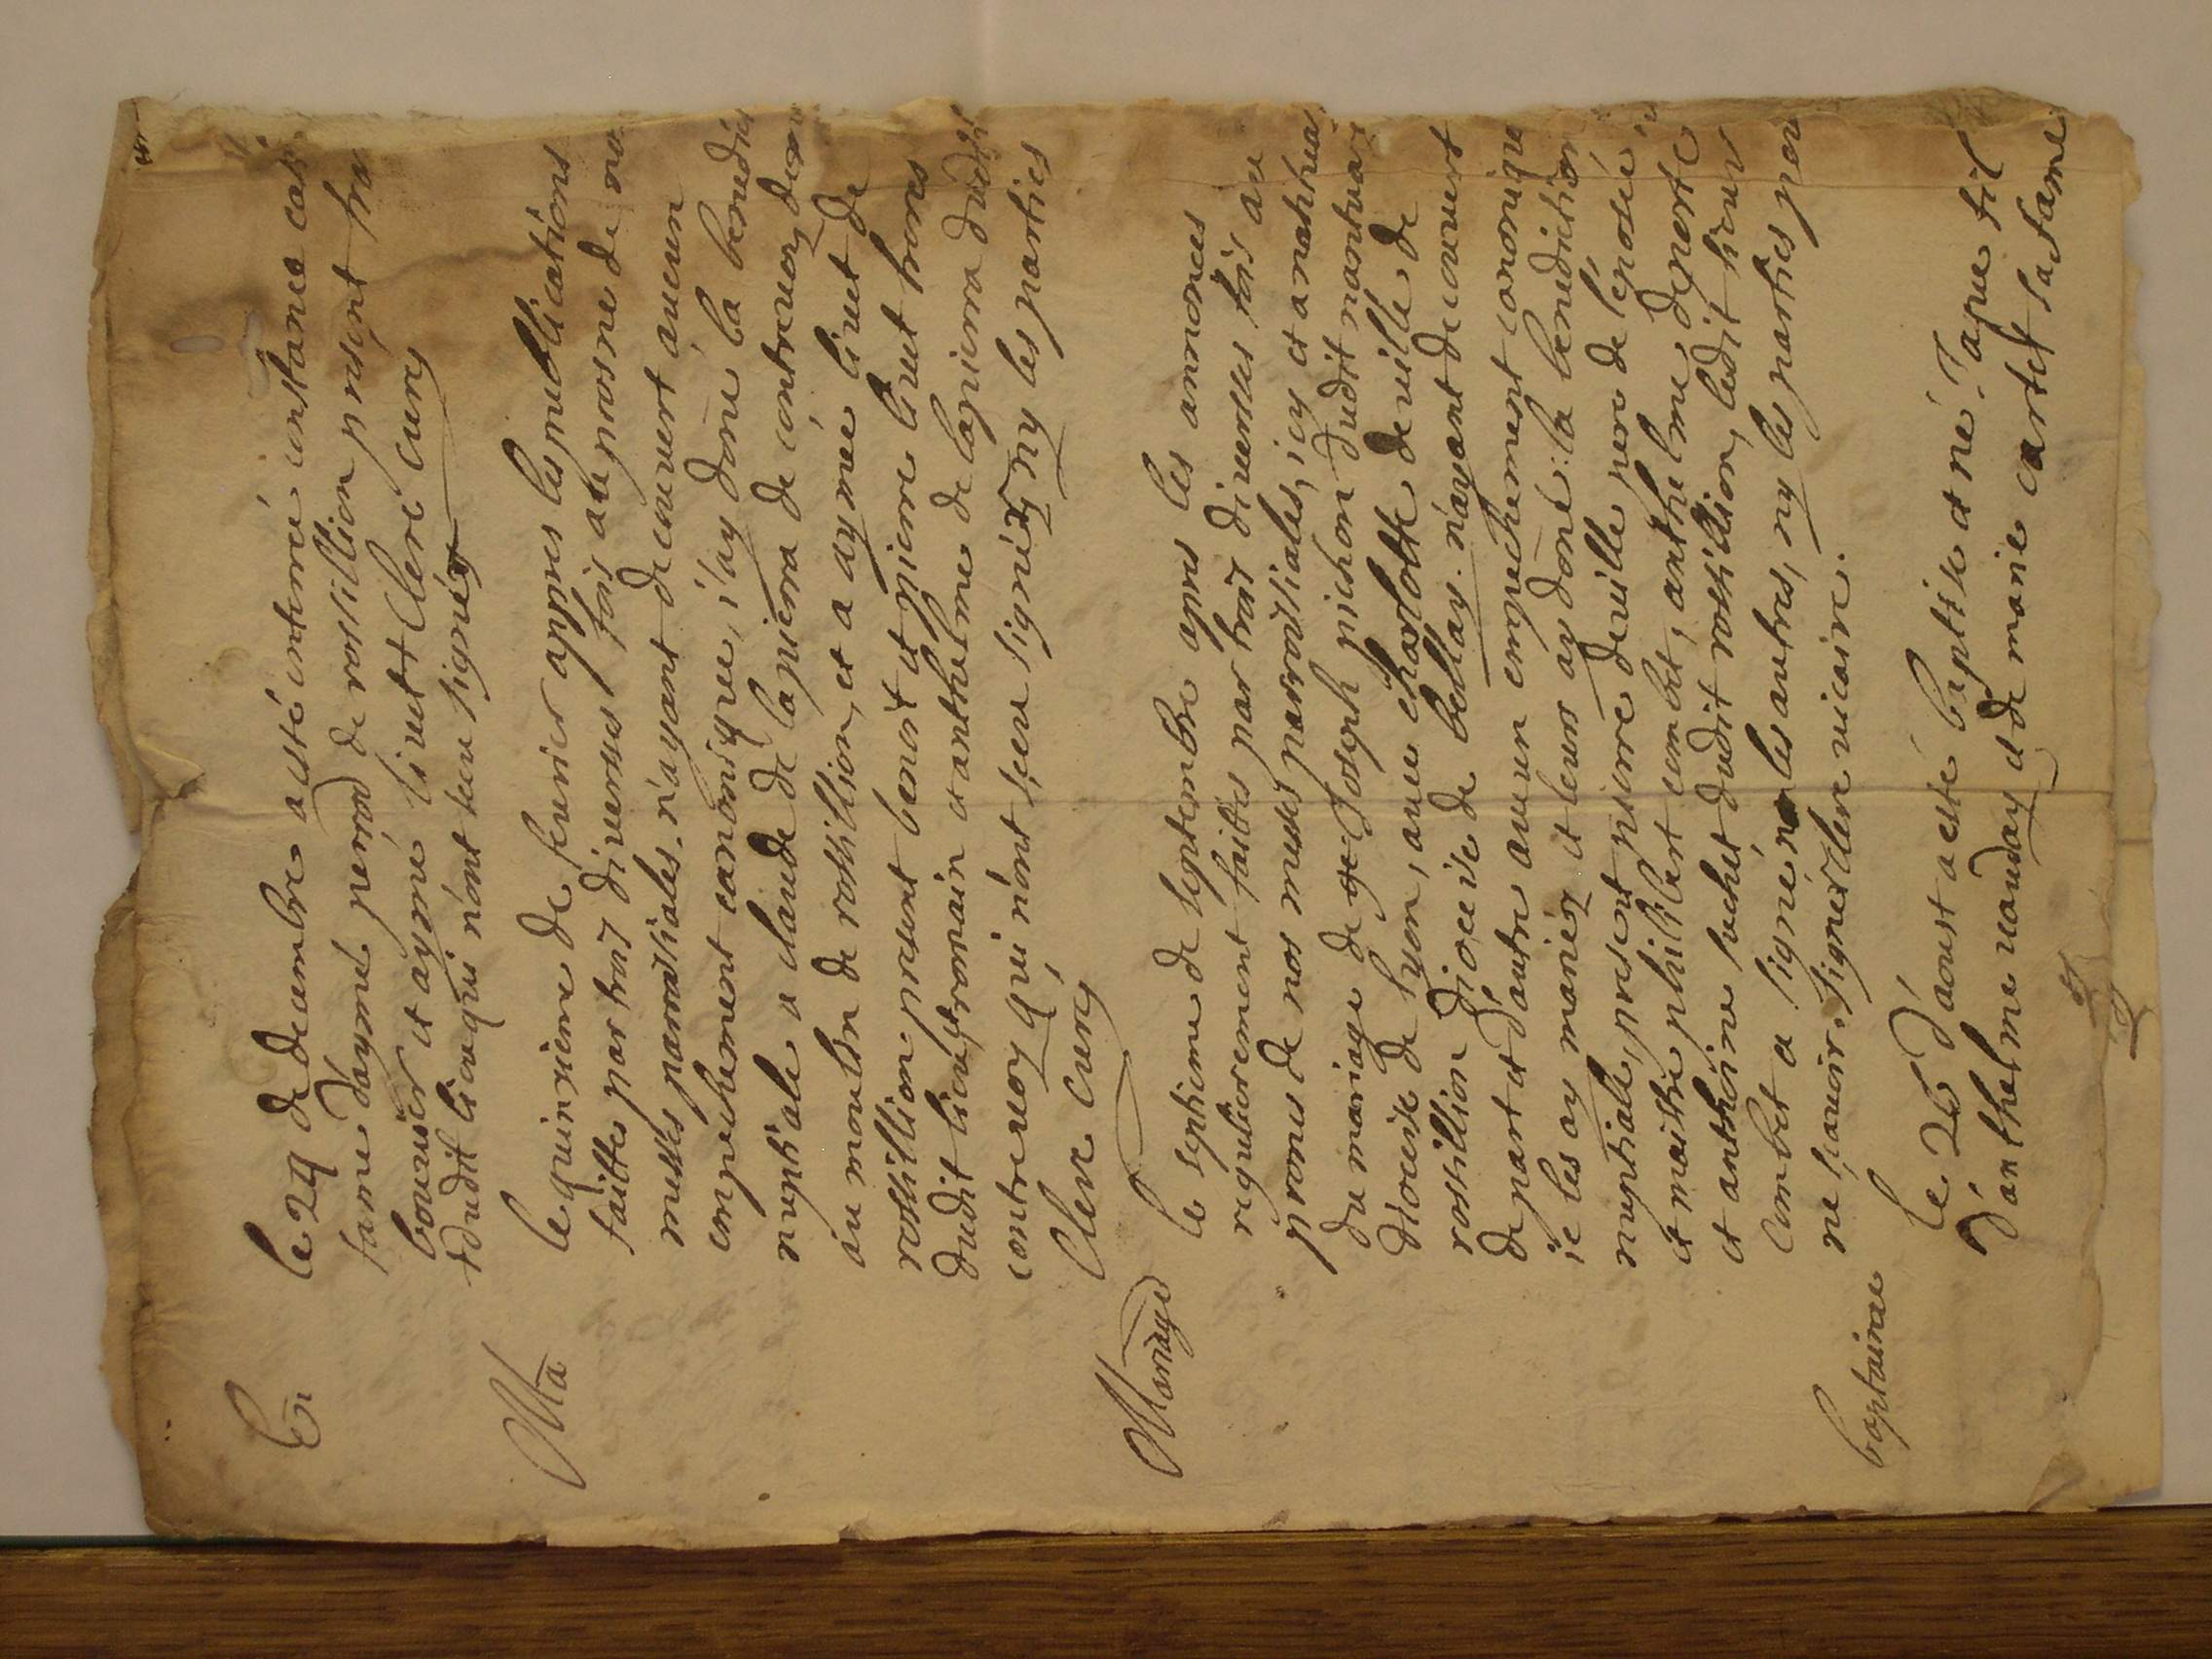 En
le 29 decembre a esté enterré constance
fame d'aymé pernod de rossillion present
bouvier et aymé livet Clerc curé
dudit lieu qui n'ont sceu signéz
Ma
le quinzieme de fevrier appres les publications
faittes par trois diverses fois au prosne de
messes parroissiales. n'ayant decouvert aucun
empechement canonique, i'ay doné la
nuptiale a claude de lapierra de contrevoz
au moulin de rossillion, et a aymée livet de
rossillion. present benoit et pierre livet freres
dudit lieu, romain et anthelme de lapierra dudit
contrevoz qui n'ont sceu signéz ny les parties
Clerc curé
Mariage
le septieme de septembre apres les annonces
regulierement faittes par trois diverses fois au
prones de nos messes parroissiales, icy et a
du mariage de Joseph pichon dudit
diocese de lyon, avec charlotte deville de
rossillion diocese de bellay. n'ayant decouvert
de part et d'autre aucun empechement canonique
ie les ay mariéz et leurs ay doné la benediction
nuptiale, present pierre deville pere de l'éposée
et maistre philibert combet, anthelme deporte
et anthoine luchet dudit rossillion, ledit sieur
combet a signé non les autres, ny les parties pour
ne scavoir. signéz Clerc vicaire.
baptaime
le 26 d'aoust a esté baptise et né Jaque fil
d'anthelme vauday et de marie cartet sa fame